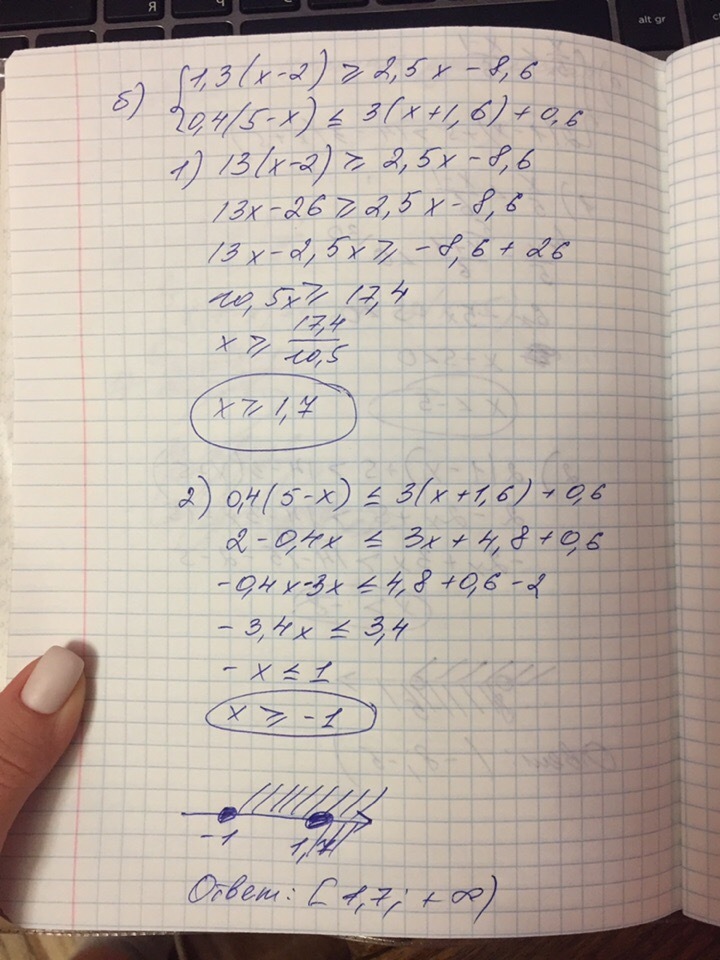 б) {1,3(x-2) ≥ 2,5x - 8,6
0,4(5-x) ≤ 3(x+1,6)+0,6
1) 13(x-2) ≥ 2,5x - 8,6
13x-26 ≥ 2,5x - 8,6
13x-2,5x ≥ -8,6+26
10,5x ≥ 17,4
x ≥ 17,4/10,5
x ≥ 1,7
2) 0,4(5-x) ≤ 3(x+1,6)+0,6
2-0,4x ≤ 3x+4,8+0,6
-0,4x-3x ≤ 4,8+0,6-2
-3,4x ≤ 3,4
-x ≤ 1
x ≥ -1
-1 1,7
Ответ: [1,7; +∞)
alt gr